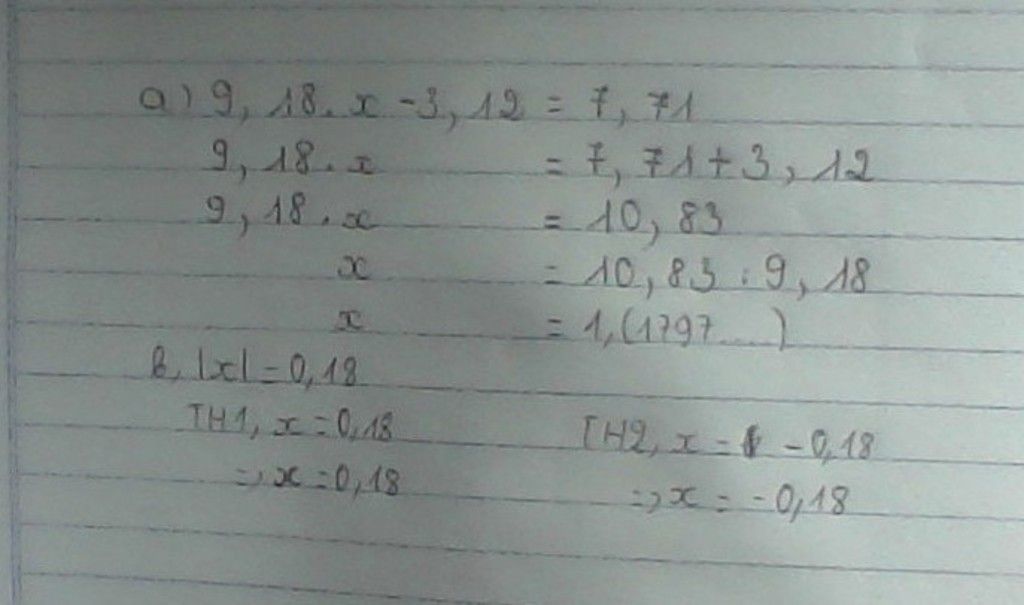 a) 9, 18. x - 3, 12 = 7, 71
9, 18. x = 7, 71 + 3, 12
9, 18. x = 10, 83
x = 10, 83 : 9, 18
x = 1, (1797...)
b, |x| = 0,18
TH1, x = 0,18 TH2, x = - 0,18
=> x = 0,18 => x = - 0,18